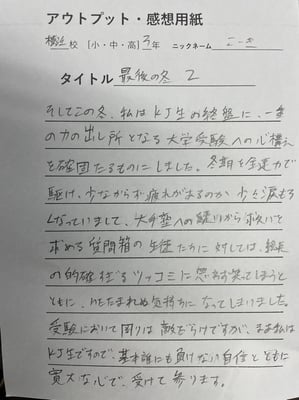 アウトプット・感想用紙
横浜校 [小・中・高] 3年 ニックネーム こーき
タイトル 最後の冬 2
そしてこの冬、私はKJ生の終盤に、一番
の力の出し所となる大学受験への心構え
を確固たるものにしました。冬期を全速力で
駆け、少なからず疲れがあるのか 少々涙もろ
くなっていまして、大本望への縋りから救いを
求める質問箱の生徒たちに対しては、校長
の的確杉るツッコミに思わず笑ってしまうと
ともに、いたたまれぬ気持ちになってしまいました。
受験において周りは敵だらけですが、まあ私は
KJ生ですので、基本誰にも負けない自信とともに
寛大な心で、受けて参ります。